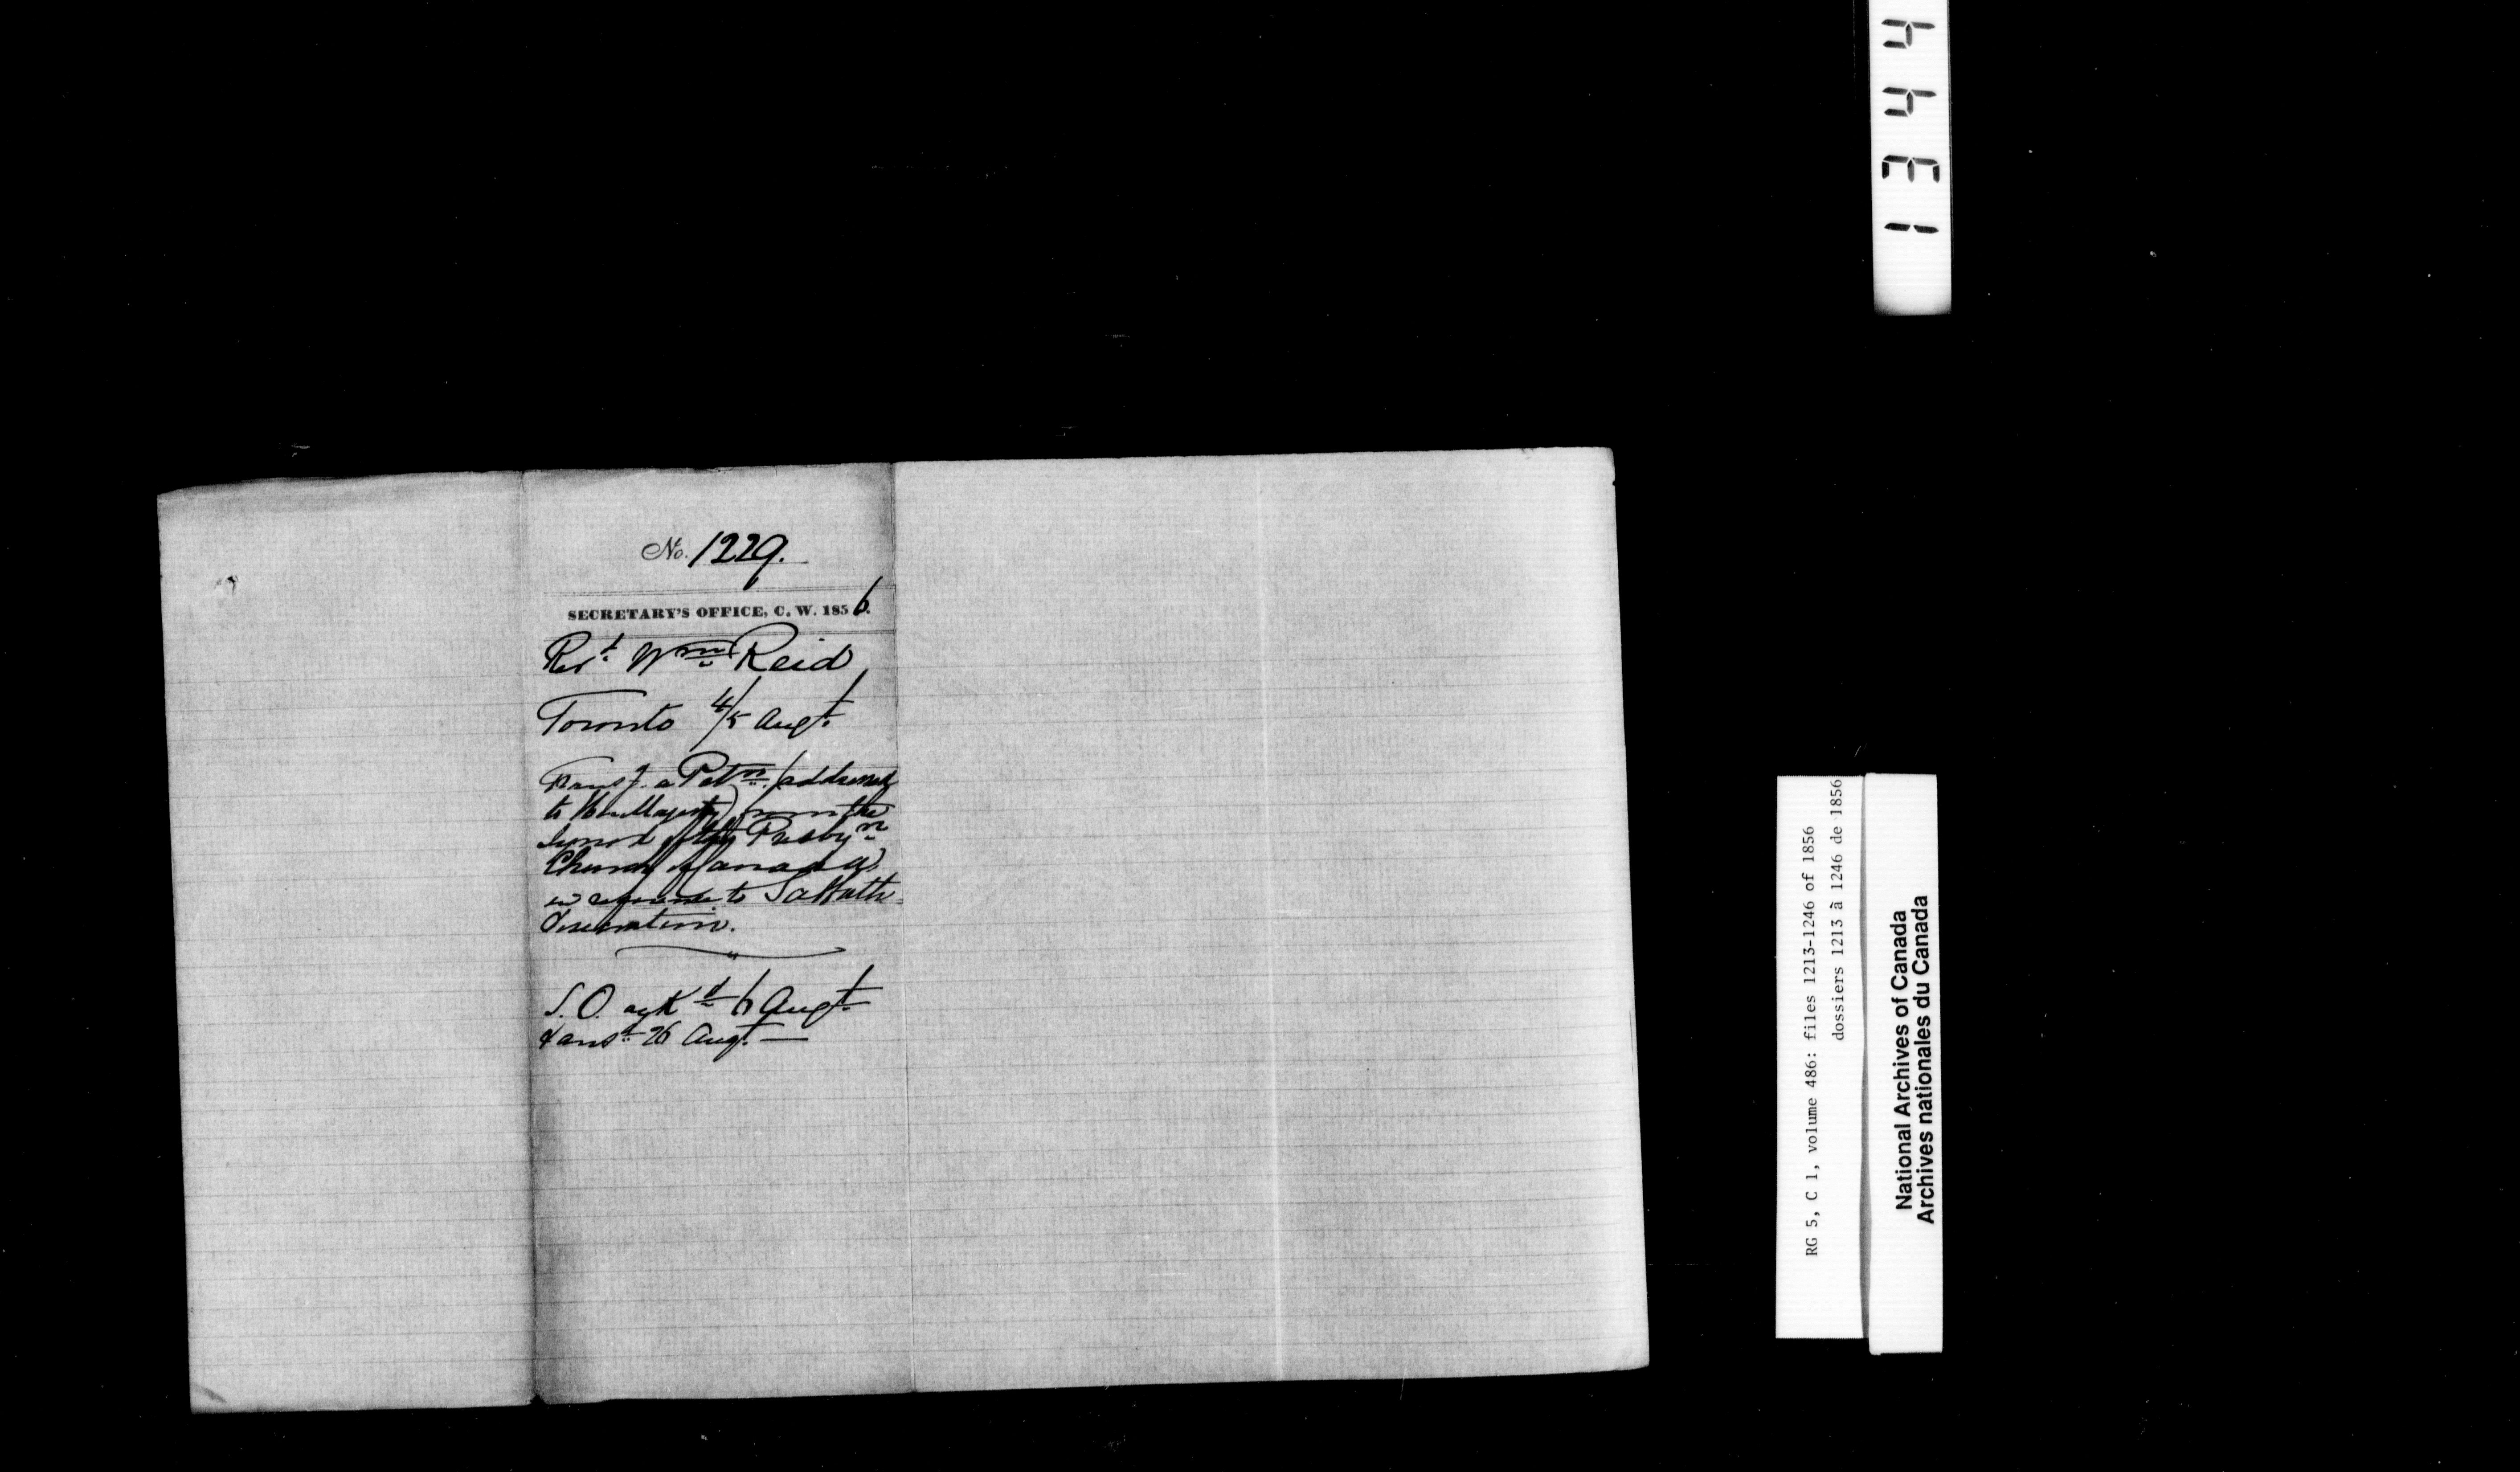 No. 1229.
SECRETARY'S OFFICE, C. W. 1856.
Revd Wm Reid
Toronto 4/5 Augt
Transg. a Petn (addressed
to Her Majesty) from the
Synod of the Presbyn
Church of Canada,
in reference to Sabbath
Desecration.
S. O. ackd 6 Augt
& ansd 26 Augt
1344
RG 5, C 1, volume 486: files 1213-1246 of 1856
dossiers 1213 à 1246 de 1856
National Archives of Canada
Archives nationales du Canada